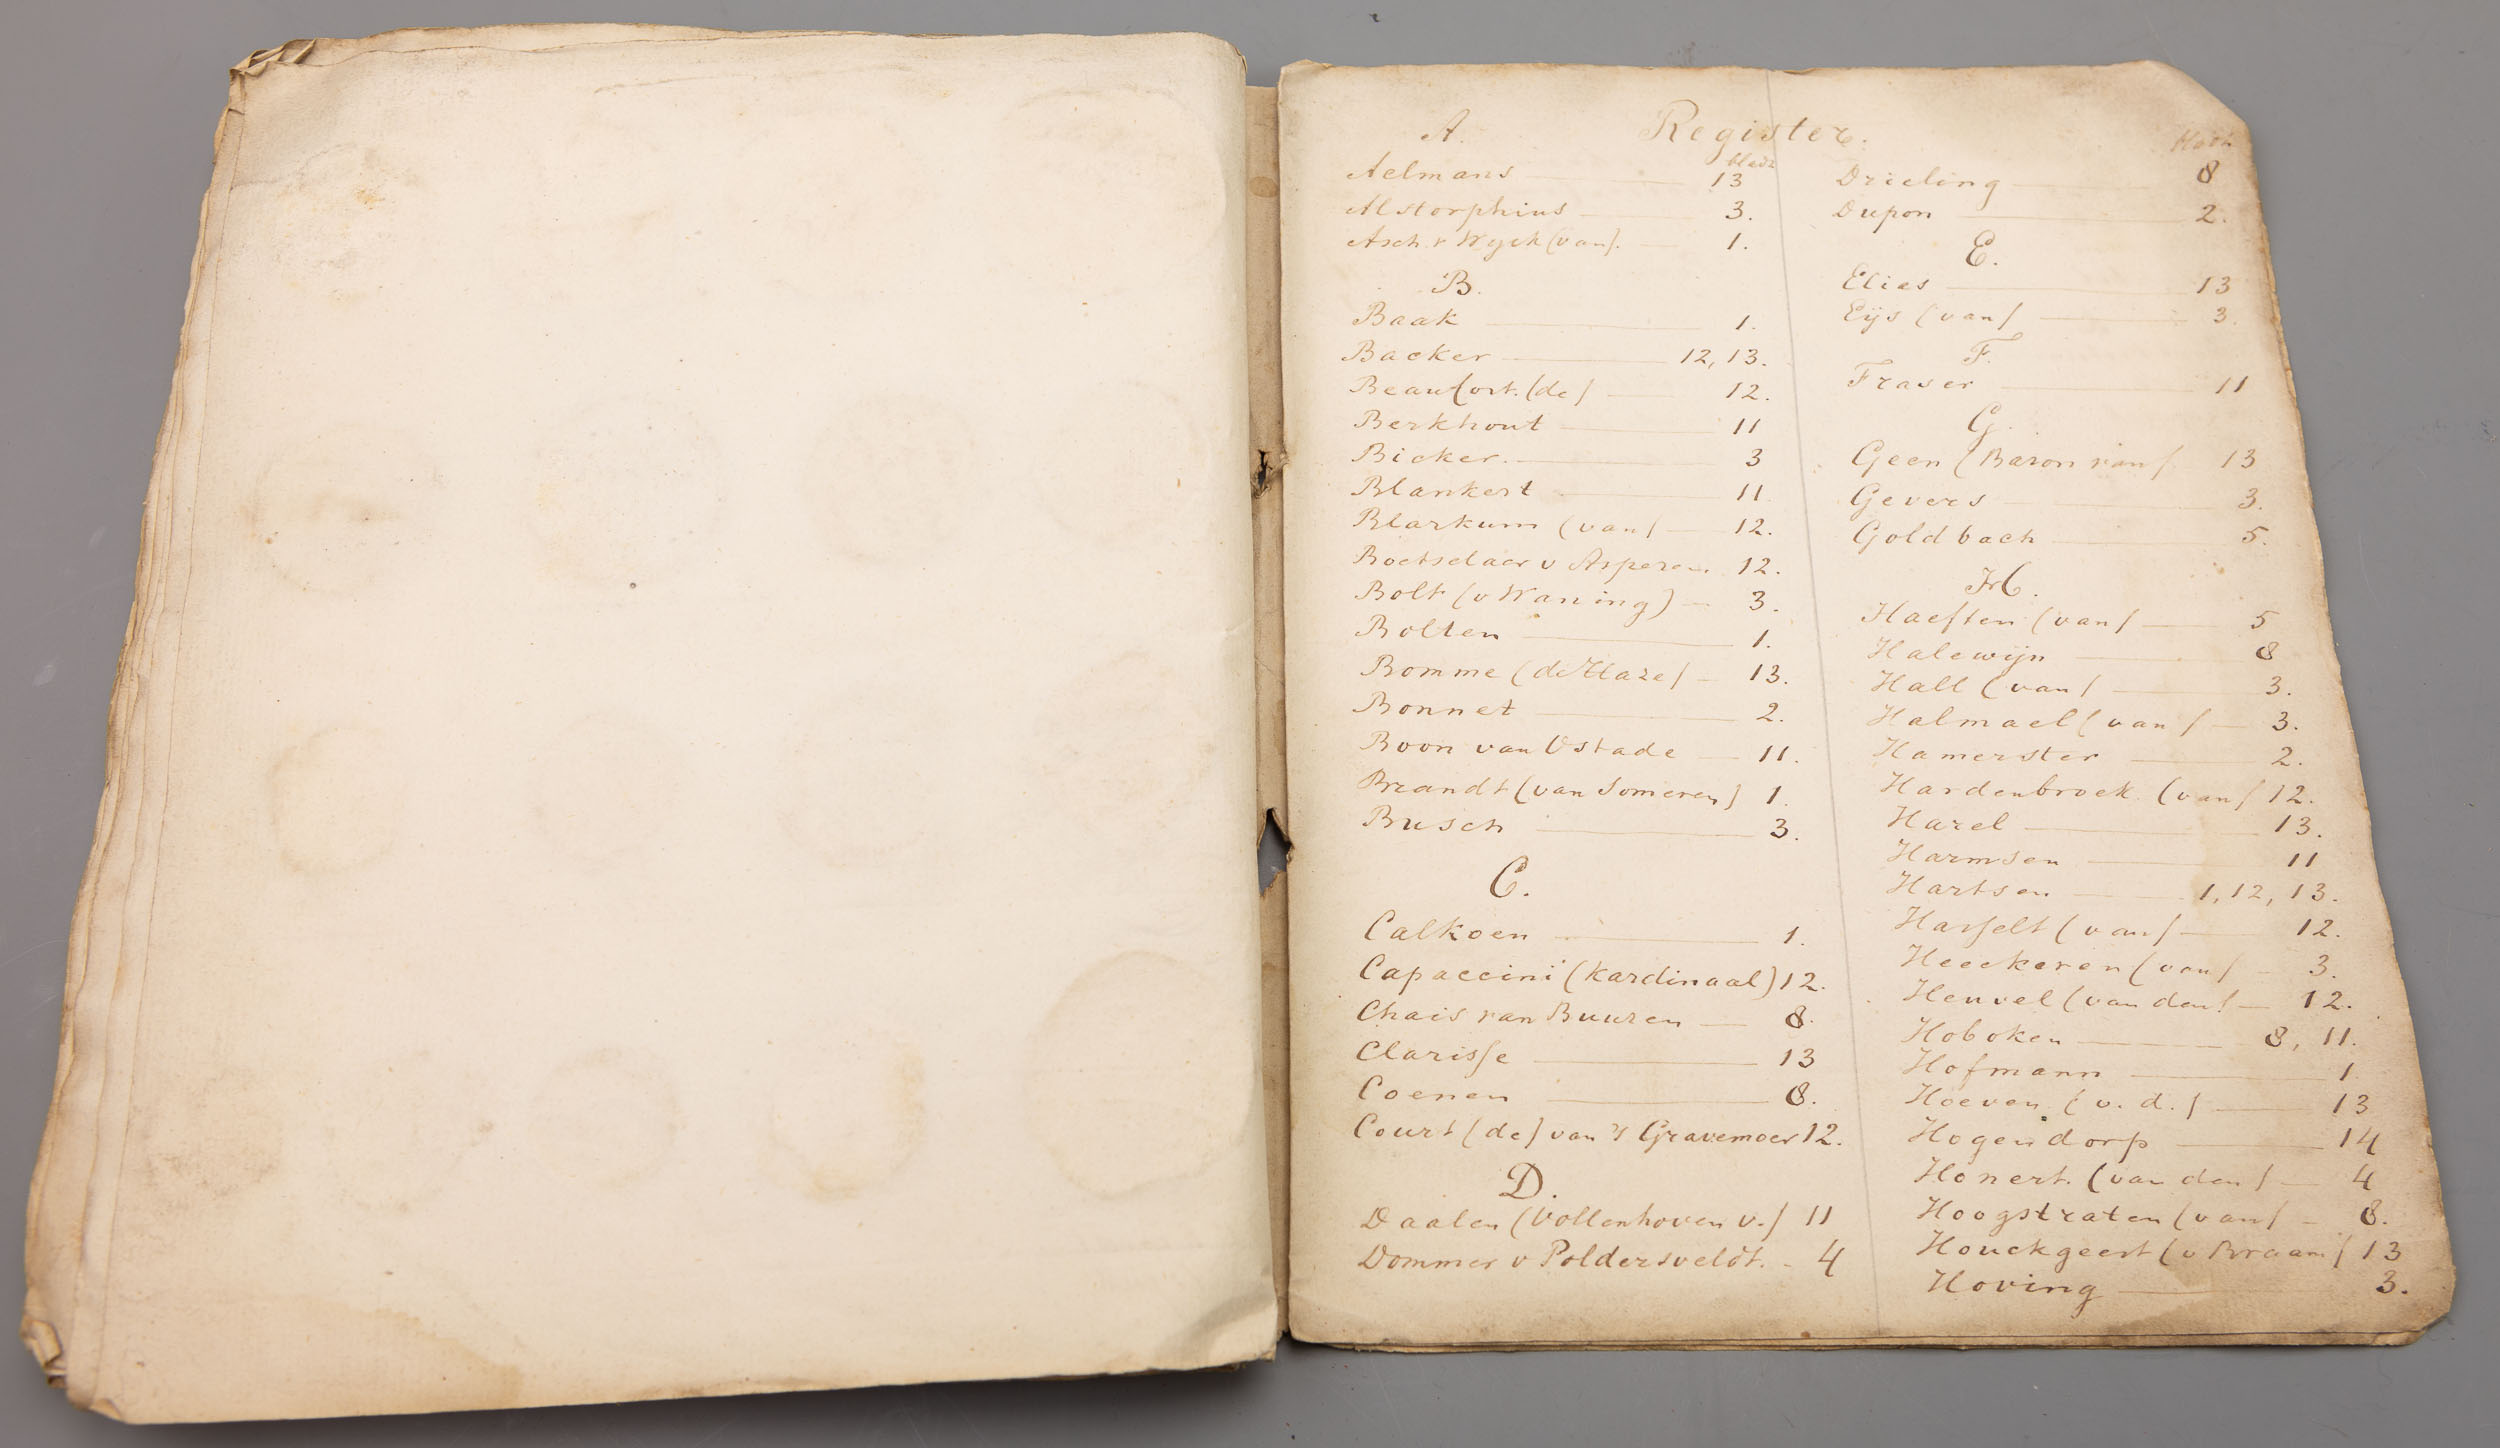 Register.
A.
bladz
Aelmans 13
Alstorphius 3.
Asch v Wyck (van). 1.
B.
Baak 1.
Backer 12, 13.
Beaufort. (de) 12.
Berkhout 11
Bicker. 3
Blankert 11
Blarkum (van) 12.
Boetselaer v Asperen 12.
Bolt (v Waning) 3.
Bolten 1.
Bomme (de Haze) 13.
Bonnet 2.
Boon van Ostade 11.
Brandt (van Someren) 1.
Busch 3.
C.
Calkoen 1.
Capaccini (Kardinaal) 12.
Chais van Buuren 8.
Clarisse 13
Coenen 8.
Court (de) van 's Gravemoer 12.
D.
Daalen (Vollenhoven v.) 11
Dommer v Poldersveldt. 4
Drieling 8
Dupon 2.
E.
Elies 13
Eijs (van) 3.
F.
Fraser 11
G.
Geen (Baron van) 13
Gevers 3.
Goldbach 5.
H.
Haeften (van) 5
Halewijn 8
Hall (van) 3.
Halmael (van) 3.
Hamerster 2.
Hardenbroek (van) 12.
Harel 13.
Harmsen 11
Hartsen 1, 12, 13.
Hasselt (van) 12.
Heeckeren (van) 3.
Heuvel (van den) 12.
Hoboken 8, 11.
Hofmann 1
Hoeven (v. d.) 13
Hogendorp 14
Honert. (van den) 4
Hoogstraten (van) 8.
Houckgeest (v Braam) 13
Hoving 3.